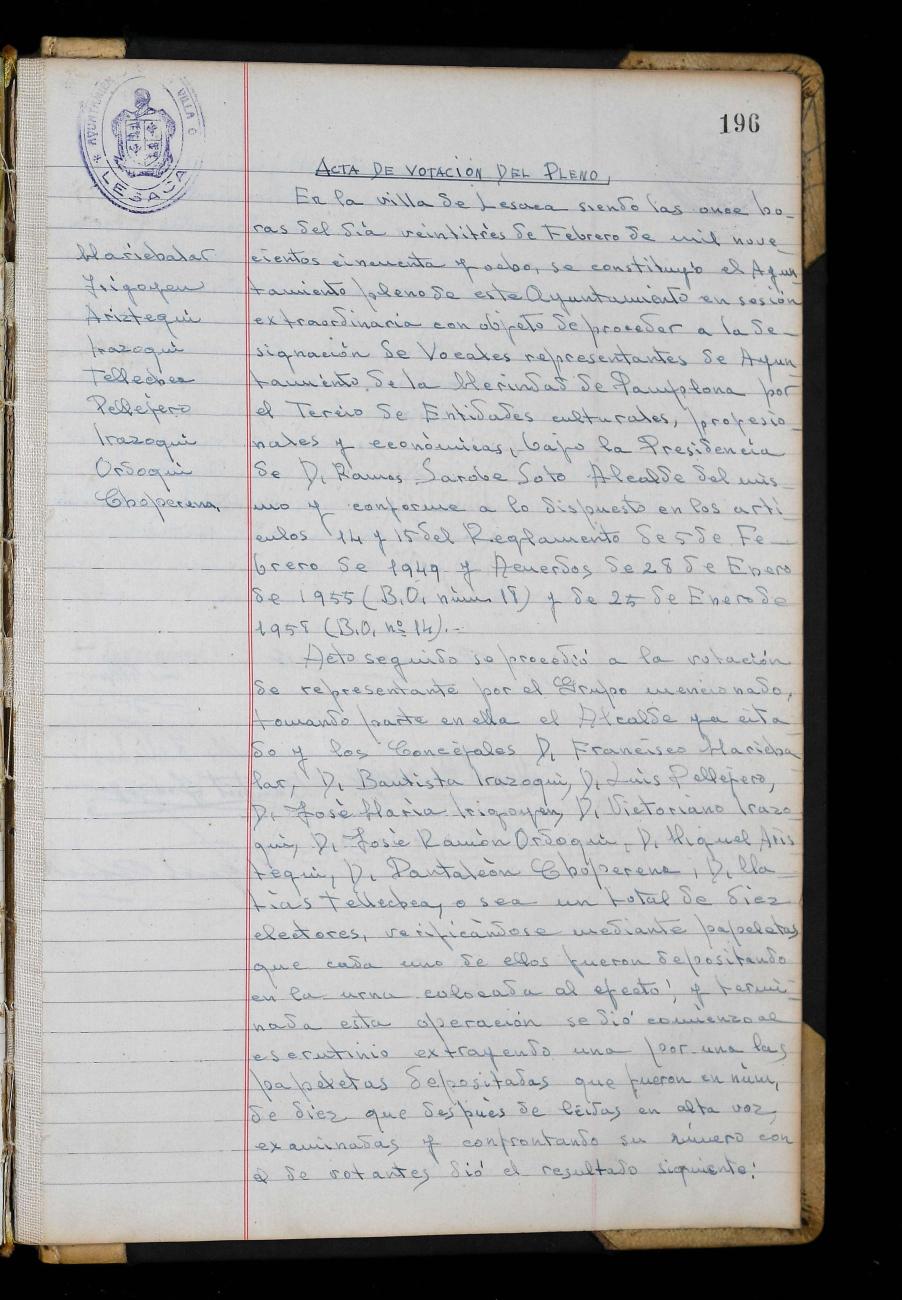 196
AYUNTAMIENTO VILLA
LESACA
ACTA DE VOTACIÓN DEL PLENO.
Mariebalar
Irigoyen
Ariztegui
Irazoqui
Tellechea
Pellejero
Irazoqui
Ordoqui
Choperena.
En la villa de Lesaca siendo las once ho-
ras del día veintitrès de Febrero de mil nove-
cientos cincuenta y ocho, se constituyó el Ayun-
tamiento pleno de este Ayuntamiento en sesión
extraordinaria con objeto de proceder a la de-
signación de Vocales representantes de Ayun-
tamiento de la Merindad de Pamplona por
el Tercio de Entidades culturales, profesio-
nales y econòmicas, bajo la Presidencia
de D. Ramos Sarobe Soto Alcalde del mis-
mo y conforme a lo dispuesto en los arti-
culos 14 y 15 del Reglamento de 5 de Fe-
brero de 1949 y Acuerdos de 28 de Enero
de 1955 (B.O. núm. 18) y de 25 de Enero de
1958 (B.O. nº 14).-
Acto seguido se procedió a la votación
de representante por el Grupo mencionado,
tomando parte en ella el Alcalde ya cita
do y los Concejales D. Francisco Marieba
lar, D. Bautista Irazoqui, D. Luis Pellejero,
D. Josè Marìa Irigoyen, D. Victoriano Irazo
qui, D. Josè Ramòn Ordoqui, D. Miguel Aris
tegui, D. Pantaleòn Choperena, D. Ma-
tìas Tellechea, o sea un total de diez
electores, verificàndose mediante papeletas
que cada uno de ellos fueron depositando
en la urna colocada al efecto; y termi-
nada esta operación se dió comienzo al
escrutinio extrayendo una por una las
papeletas depositadas que fueron en núm.
de diez que después de leidas en alta voz,
examinadas y confrontando su número con
e de votantes dió el resultado siguiente: